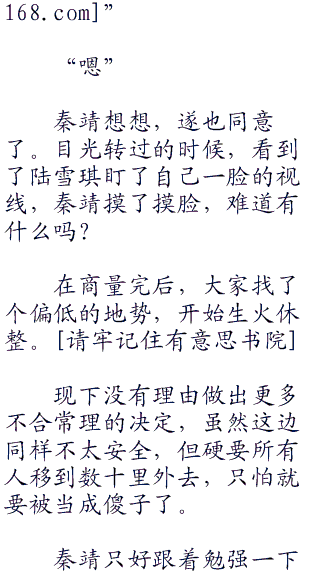 168.com]”
“嗯”
秦靖想想，遂也同意
了。目光转过的时候，看到
了陆雪琪盯了自己一脸的视
线，秦靖摸了摸脸，难道有
什么吗？
在商量完后，大家找了
个偏低的地势，开始生火休
整。[请牢记住有意思书院]
现下没有理由做出更多
不合常理的决定，虽然这边
同样不太安全，但硬要所有
人移到数十里外去，只怕就
要被当成傻子了。
秦靖只好跟着勉强一下